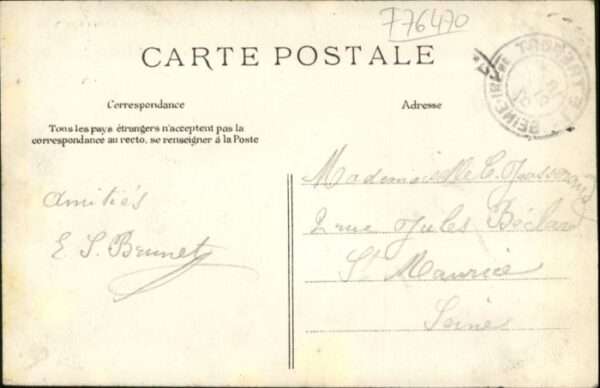 776470
CARTE POSTALE
Correspondance
Adresse
Tous les pays étrangers n'acceptent pas la
correspondance au recto, se renseigner à la Poste
Amitiés
E. S. Brunet
Mademoiselle C.
2 rue Jules Béclard
St Maurice
Seine